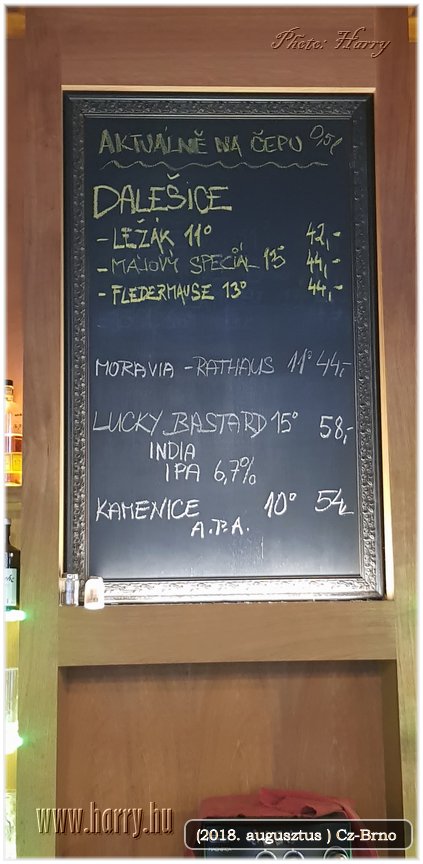 Photo: Harry
AKTUÁLNĚ NA ČEPU 0,5l
DALEŠICE
- LEŽÁK 11° 42,-
- MÁJOVÝ SPECIÁL 13° 44,-
- FLEDERMAUSE 13° 44,-
MORAVIA - RATHAUS 11° 44,-
LUCKY BASTARD 15° 58,-
INDIA
IPA 6,7%
KAMENICE 10° 54,-
A.P.A.
www.harry.hu
(2018. augusztus ) Cz-Brno